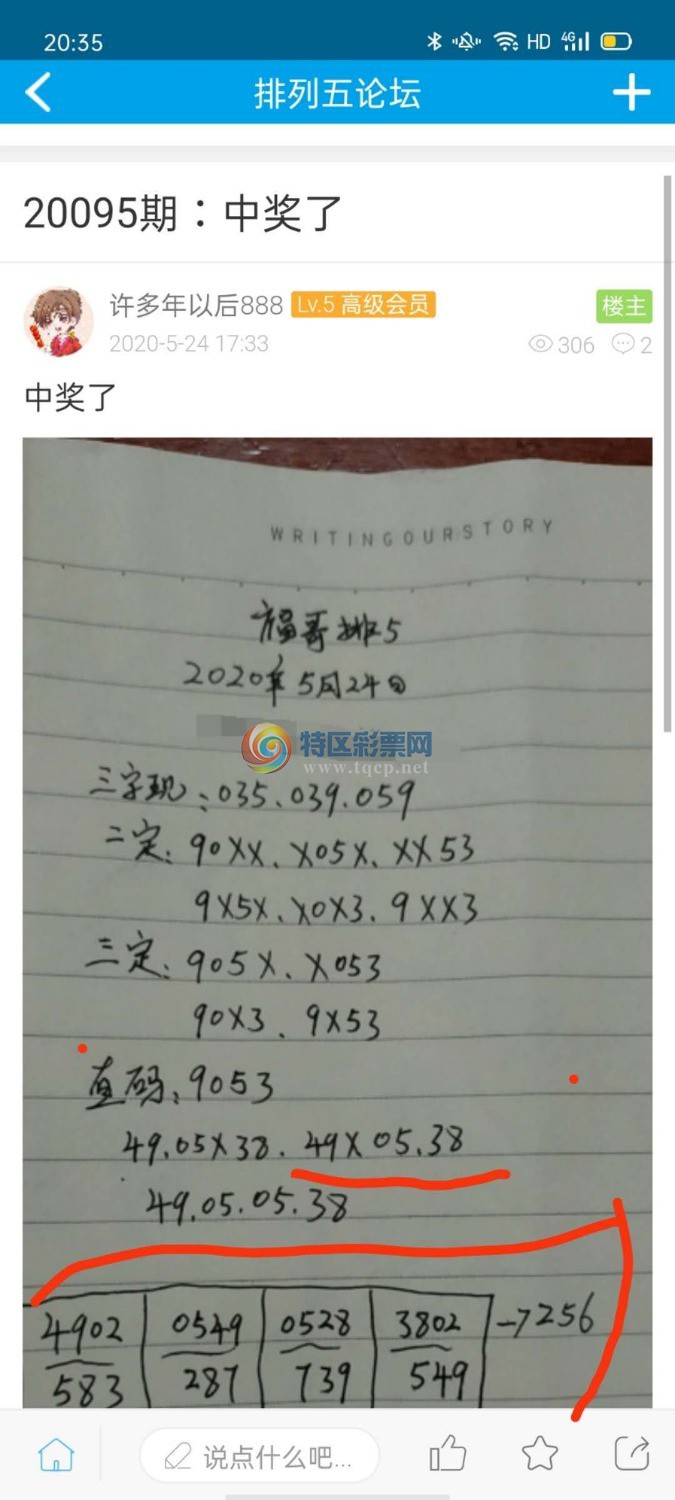 20:35 HD 4G
排列五论坛
20095期：中奖了
许多年以后888 Lv.5 高级会员 楼主
2020-5-24 17:33 306 2
中奖了
WRITINGOURSTORY
福哥排5
2020年5月24日
特区彩票网
www.tqcp.net
三字现：035.039.059
二定：90XX.X05X.XX53
9X5X.X0X3.9XX3
三定：905X.X053
90X3.9X53
直码：9053
49.05X38.49X05.38
49.05.05.38
4902 0549 0528 3802 →7256
583 287 739 549
说点什么吧...